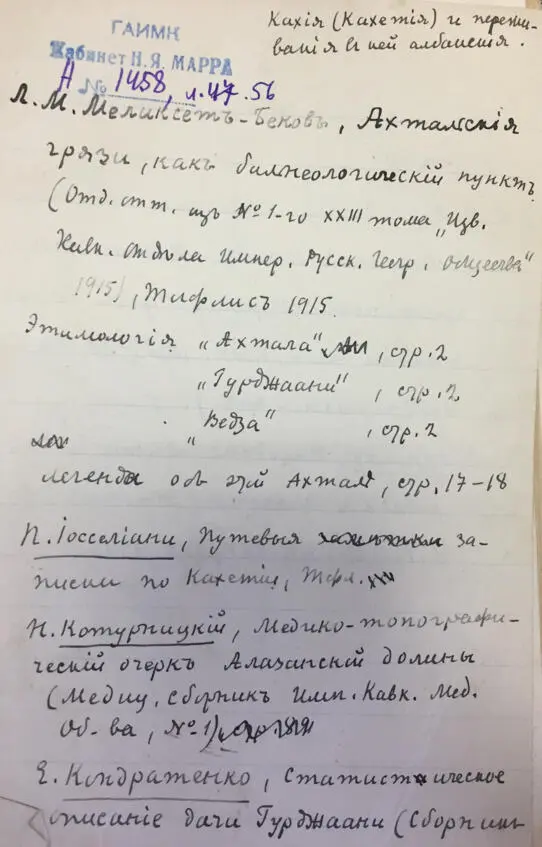 Кахія (Кахетія) и пережи-
ванія въ ней албанства.
ГАИМК
Кабинет Н.Я. МАРРА
А № 1458, л. 47. 56
Л. М. Меликсетъ-Бековъ, Ахтальскія
грязи, какъ бальнеологическій пунктъ
(Отд. отт. изъ № 1-го XXIII тома „Изв.
Кавк. отдѣла Импер. Русск. Геогр. Общества"
1915), Тифлисъ 1915.
Этимологія „Ахтала" , стр. 2
„Гурджаани" , стр. 2
„Ведза" , стр. 2
легенда объ этой Ахталѣ, стр. 17-18
П. Іосселіани, Путевыя за-
писки по Кахетіи, Тифл.
Н. Котурницкій, Медико-топографи-
ческій очеркъ Алазанской долины
(Медиц. сборникъ Имп. Кавк. Мед.
Об-ва, № 1),
Е. Кондратенко, Статистическое
описаніе дачи Гурджаани (Сборникъ